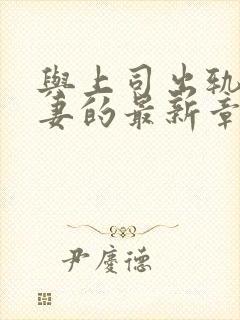 與上司出軌
妻的最新章
尹慶德